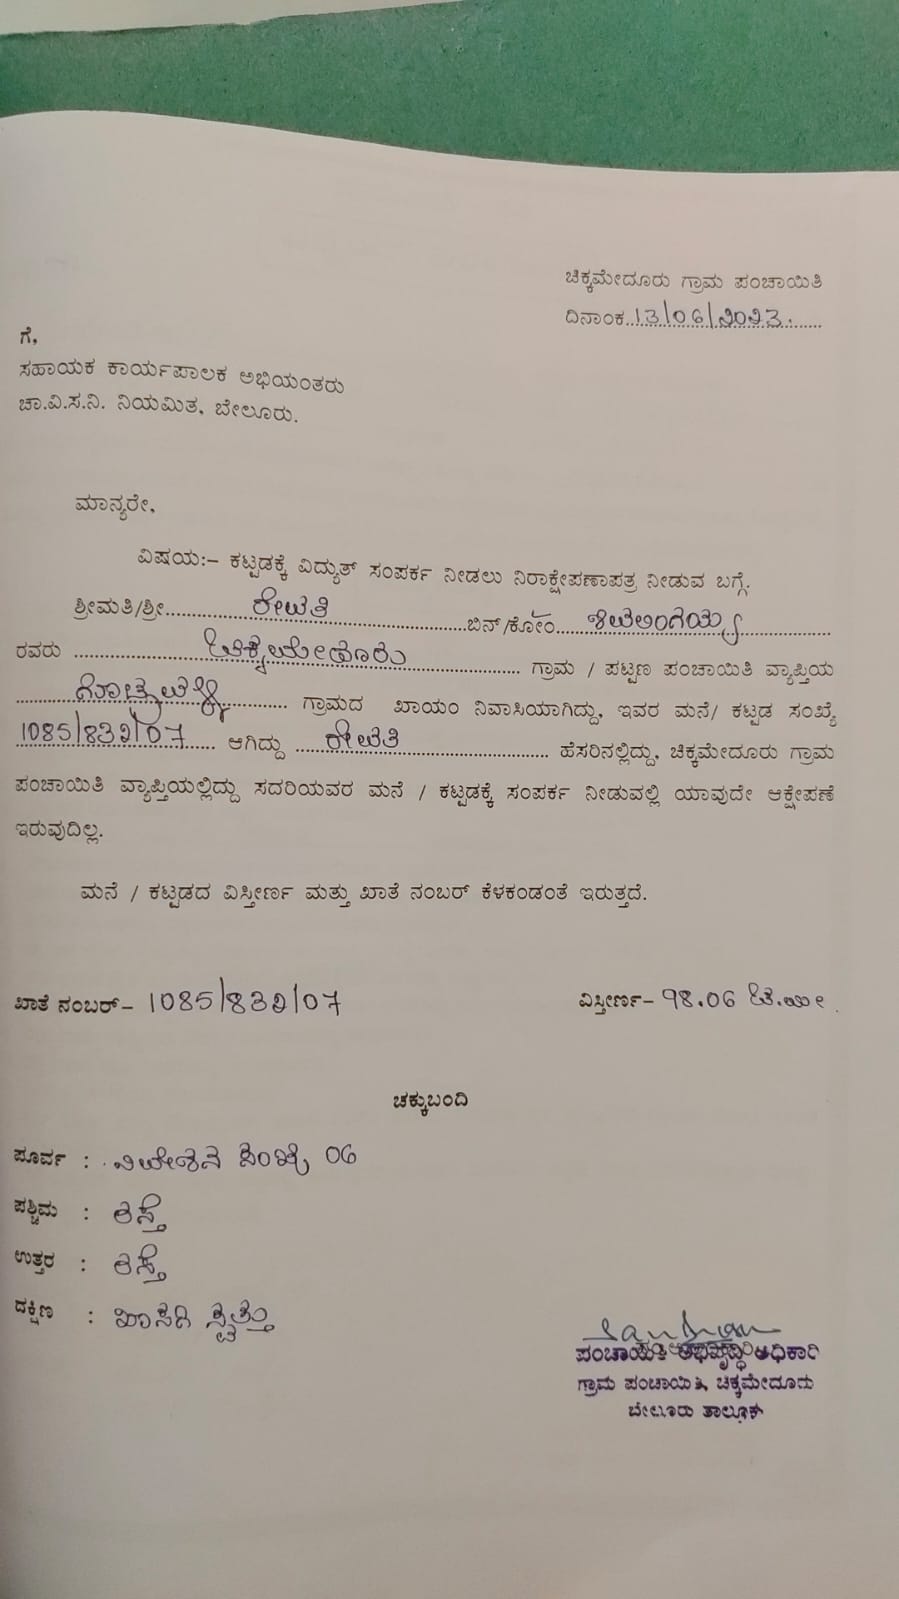 ಚಿಕ್ಕಮೇದೂರು ಗ್ರಾಮ ಪಂಚಾಯಿತಿ
ದಿನಾಂಕ..13/06/2023.......
ಗೆ,
ಸಹಾಯಕ ಕಾರ್ಯಪಾಲಕ ಅಭಿಯಂತರು
ಚಾ.ವಿ.ಸ.ನಿ. ನಿಯಮಿತ, ಬೇಲೂರು.
ಮಾನ್ಯರೇ,
ವಿಷಯ:– ಕಟ್ಟಡಕ್ಕೆ ವಿದ್ಯುತ್ ಸಂಪರ್ಕ ನೀಡಲು ನಿರಾಕ್ಷೇಪಣಾಪತ್ರ ನೀಡುವ ಬಗ್ಗೆ.
ಶ್ರೀಮತಿ/ಶ್ರೀ............ರೇವತಿ....................ಬಿನ್/ಕೋಂ....ಶಿವಲಿಂಗಯ್ಯ............
ರವರು ................ಚಿಕ್ಕಮೇದೂರು................ ಗ್ರಾಮ / ಪಟ್ಟಣ ಪಂಚಾಯಿತಿ ವ್ಯಾಪ್ತಿಯ
........................ ಗ್ರಾಮದ ಖಾಯಂ ನಿವಾಸಿಯಾಗಿದ್ದು, ಇವರ ಮನೆ/ ಕಟ್ಟಡ ಸಂಖ್ಯೆ
1085/832/07...... ಆಗಿದ್ದು ....ರೇವತಿ.................... ಹೆಸರಿನಲ್ಲಿದ್ದು, ಚಿಕ್ಕಮೇದೂರು ಗ್ರಾಮ
ಪಂಚಾಯಿತಿ ವ್ಯಾಪ್ತಿಯಲ್ಲಿದ್ದು ಸದರಿಯವರ ಮನೆ / ಕಟ್ಟಡಕ್ಕೆ ಸಂಪರ್ಕ ನೀಡುವಲ್ಲಿ ಯಾವುದೇ ಆಕ್ಷೇಪಣೆ
ಇರುವುದಿಲ್ಲ.
ಮನೆ / ಕಟ್ಟಡದ ವಿಸ್ತೀರ್ಣ ಮತ್ತು ಖಾತೆ ನಂಬರ್ ಕೆಳಕಂಡಂತೆ ಇರುತ್ತದೆ.
ಖಾತೆ ನಂಬರ್– 1085/832/07 ವಿಸ್ತೀರ್ಣ– 98.06 ಚ.ಮೀ.
ಚಕ್ಕುಬಂದಿ
ಪೂರ್ವ : ನಿವೇಶನ ಸಂಖ್ಯೆ 06
ಪಶ್ಚಿಮ : ರಸ್ತೆ
ಉತ್ತರ : ರಸ್ತೆ
ದಕ್ಷಿಣ : ಖಾಸಗಿ ಸ್ವತ್ತು
ಪಂಚಾಯತಿ ಅಭಿವೃದ್ಧಿ ಅಧಿಕಾರಿ
ಗ್ರಾಮ ಪಂಚಾಯಿತಿ, ಚಿಕ್ಕಮೇದೂರು
ಬೇಲೂರು ತಾಲ್ಲೂಕ್